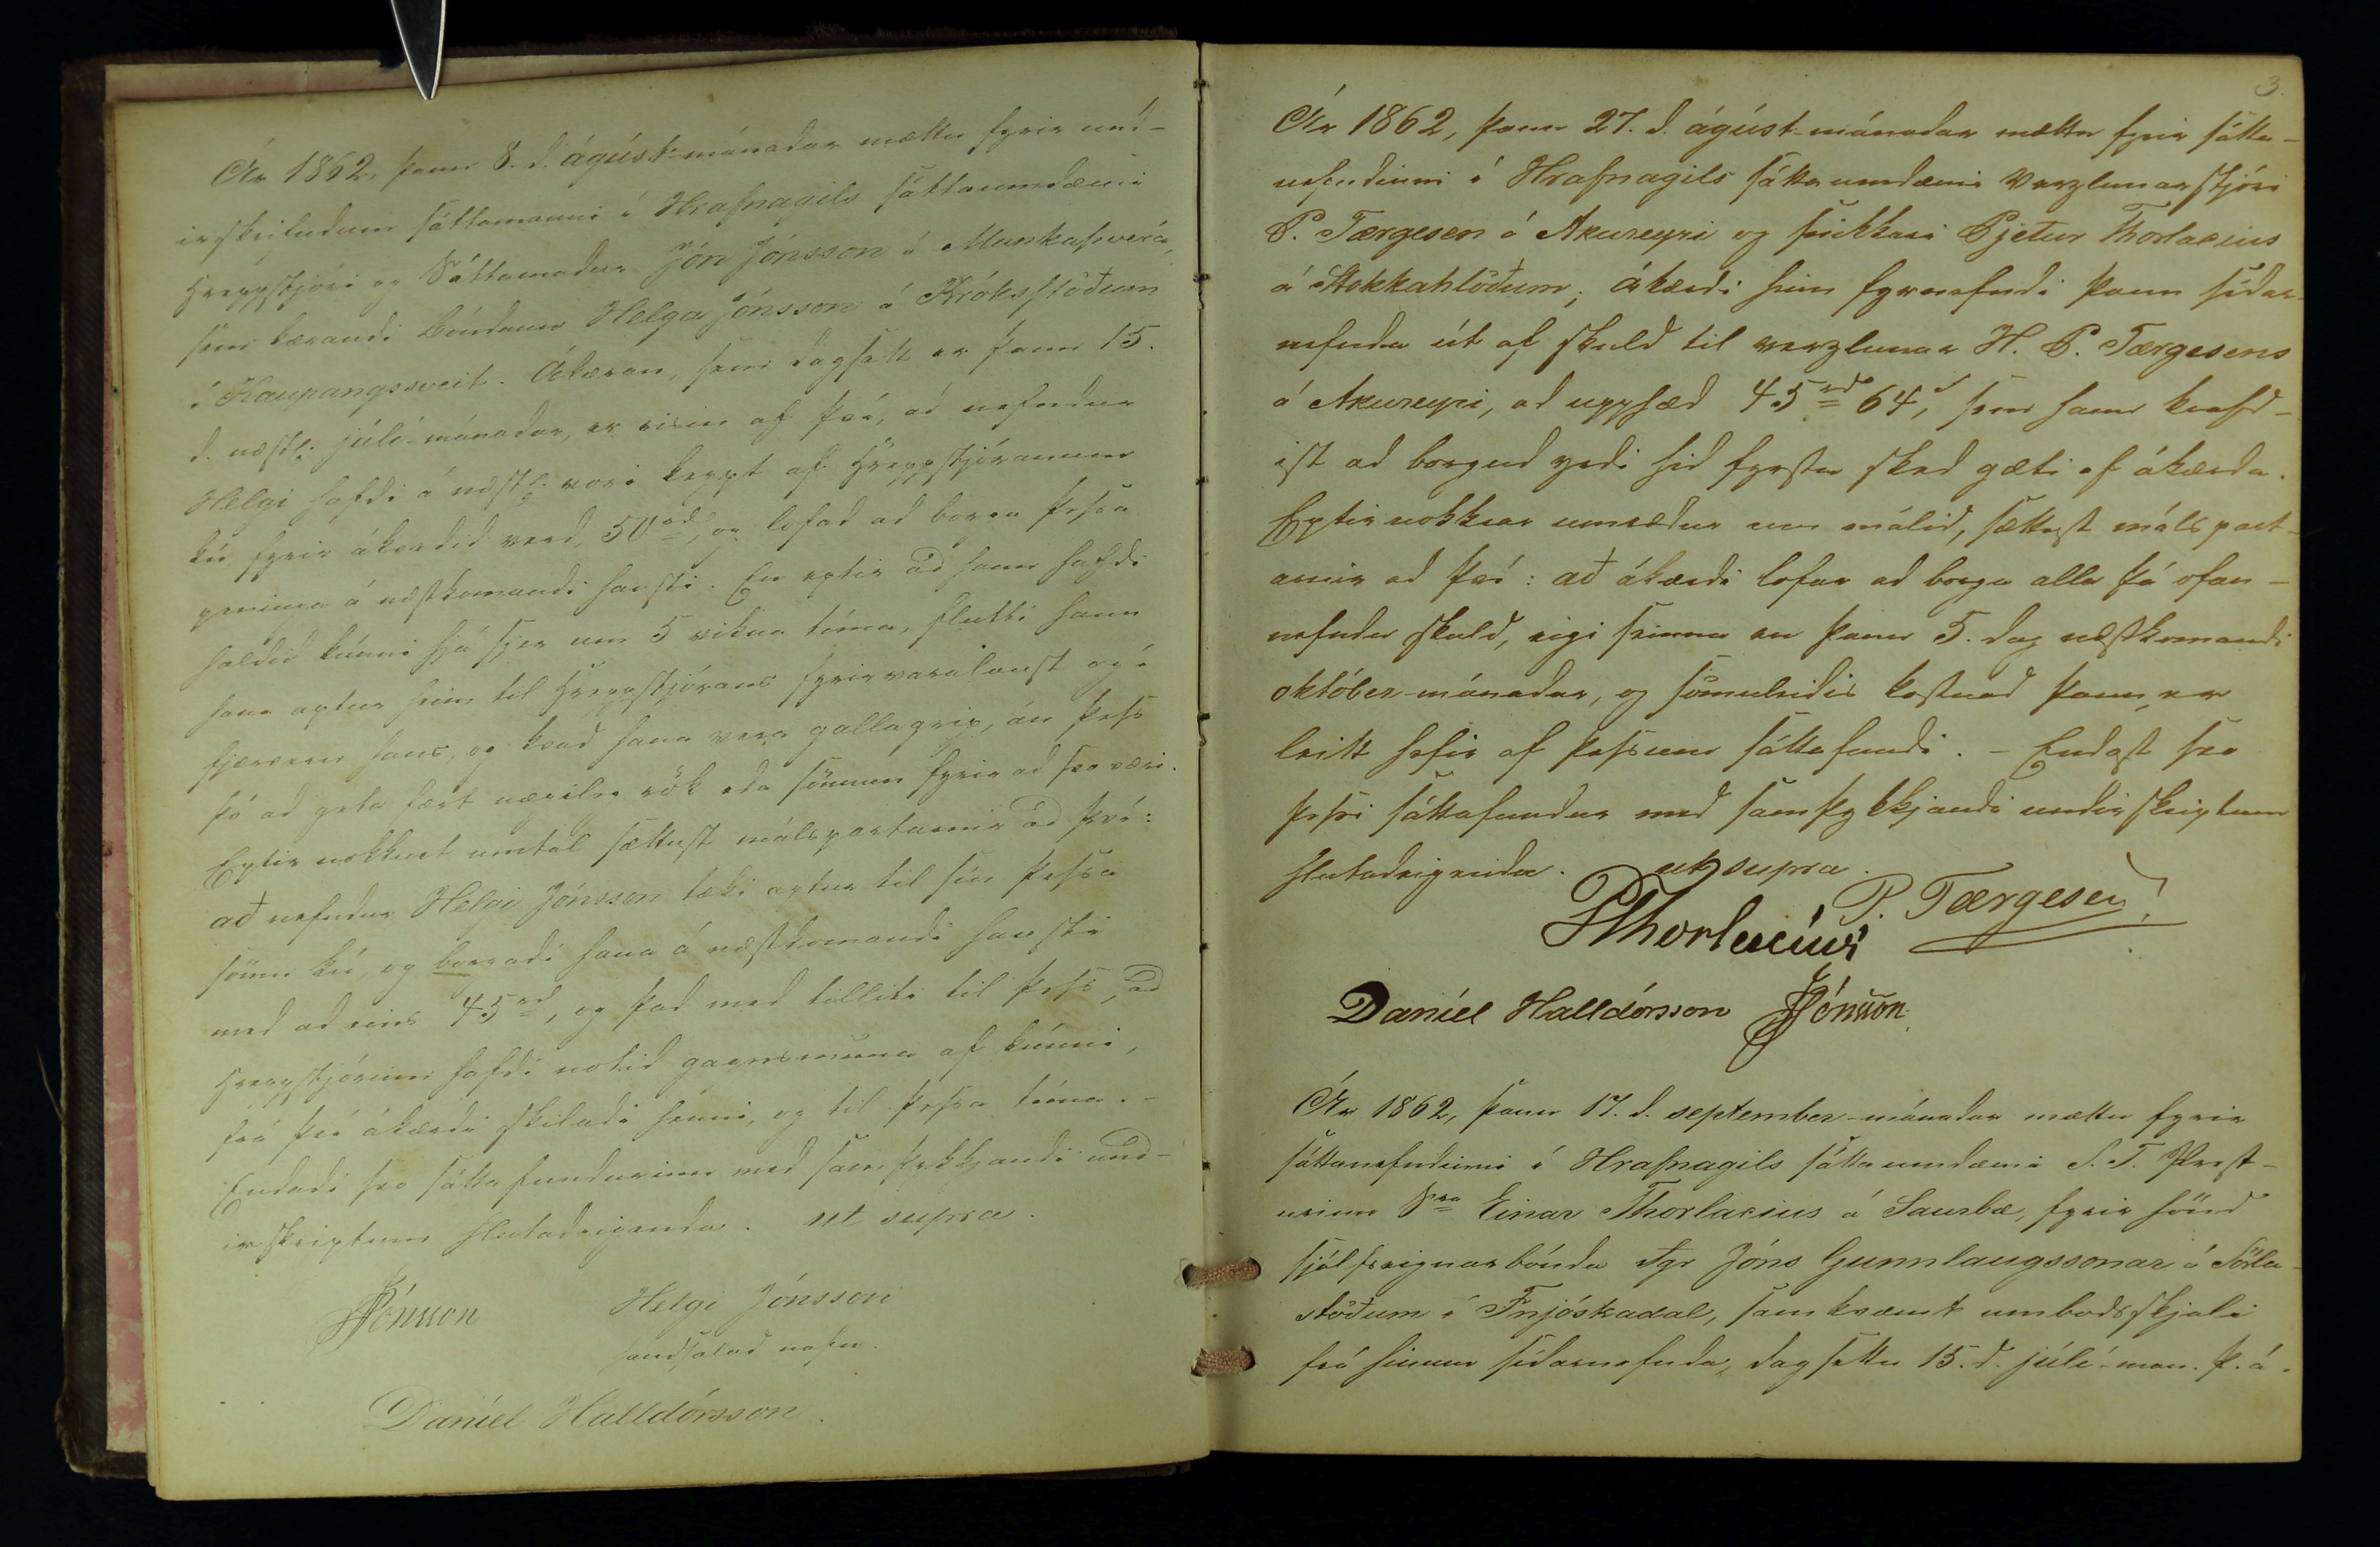 Ár 1862, þann 8. d. ágúst-mánadar mættu fyrir und-
irskrifudum sáttamanni í Hrafnagils sáttaumdæmi
Hreppstjóri og Sáttamadur Jón Jónsson á Munkaþverá,
sem kærandi bóndann Helga Jónsson á Króksstöðum
í Kaupangssveit. Ákæran, sem dagsett er þann 15.
d. næstl. júlí-mánadar, er risin af því, ad nefndur
Helgi hafdi á næstl. vori keypt af Hreppstjóranum
kú fyrir ákvedid verd, 50 rd, og lofad ad borga þessa
peninga á næstkomandi hausti. En eptir ad hann hafdi
haldid kúnni hjá sjer um 5 vikna tíma, flutti hann
hana aptur heim til Hreppstjórans fyrirvaralaust og í
fjærveru hans, og kvad hana vera gallagrip, án þess
þó ad geta fært nægileg rök eda sönnun fyrir ad svo væri.
Eptir nokkurt umtal sættust málspartarnir ad því:
að nefndur Helgi Jónsson tæki aptur til sín þessa
sömu kú, og borgadi hana á næstkomandi hausti
med ad eins 45 rd, og þad med tilliti til þess, ad
Hreppstjórinn hafdi notid gagnsmuna af kúnni,
frá því ákærdi skiladi henni, og til þessa tíma. -
Endadi svo sáttafundurinn med samþykkjandi und-
irskriptum hlutadeigenda. ut supra.
JJónsson Helgi Jónsson
handsalad nafn.
Daníel Halldórsson.
3.
Ár 1862, þann 27. d. ágúst-mánadar mættu fyrir sátta-
nefndinni í Hrafnagils sáttaumdæmi Verzlunarstjóri
P. Tærgesen á Akureyri og stúkkari Pjetur Thorlacius
á Stokkahlöðum; ákærdi hinn fyrnefndi þann sídar-
nefnda út af skuld til verzlunar H. P. Tærgesens
á Akureyri, ad upphæd 45 rd 64 s, sem hann krafd-
ist ad borgud yrdi hid fyrsta sked gæti af ákærda.
Eptir nokkrar umrædur um málid, sættust málspart-
arnir ad því: að ákærdi lofar ad borga alla þá ofan-
nefnda skuld, eigi seinna en þann 5. dag næstkomandi
október-mánadar, og sömuleidis kostnad þann, er
leitt hefir af þessum sáttafundi. - Endast svo
þessi sáttafundur med samþykkjandi undirskriptum
hlutadeigenda. ut supra.
P. Tærgesen
PThorlacius
Daníel Halldórsson JJónsson.
Ár 1862, þann 17. d. september-mánadar mættu fyrir
sáttanefndinni í Hrafnagils sáttaumdæmi S. T. Prest-
urinn Sra Einar Thorlacius á Saurbæ, fyrir hönd
sjálfseignarbónda Sgr Jóns Gunnlaugssonar á Sörla-
stöðum í Fnjóskadal, samkvæmt umbodsskjali
frá hinum sídarnefnda, dagsettu 15. d. júlí-mán. þ. á.